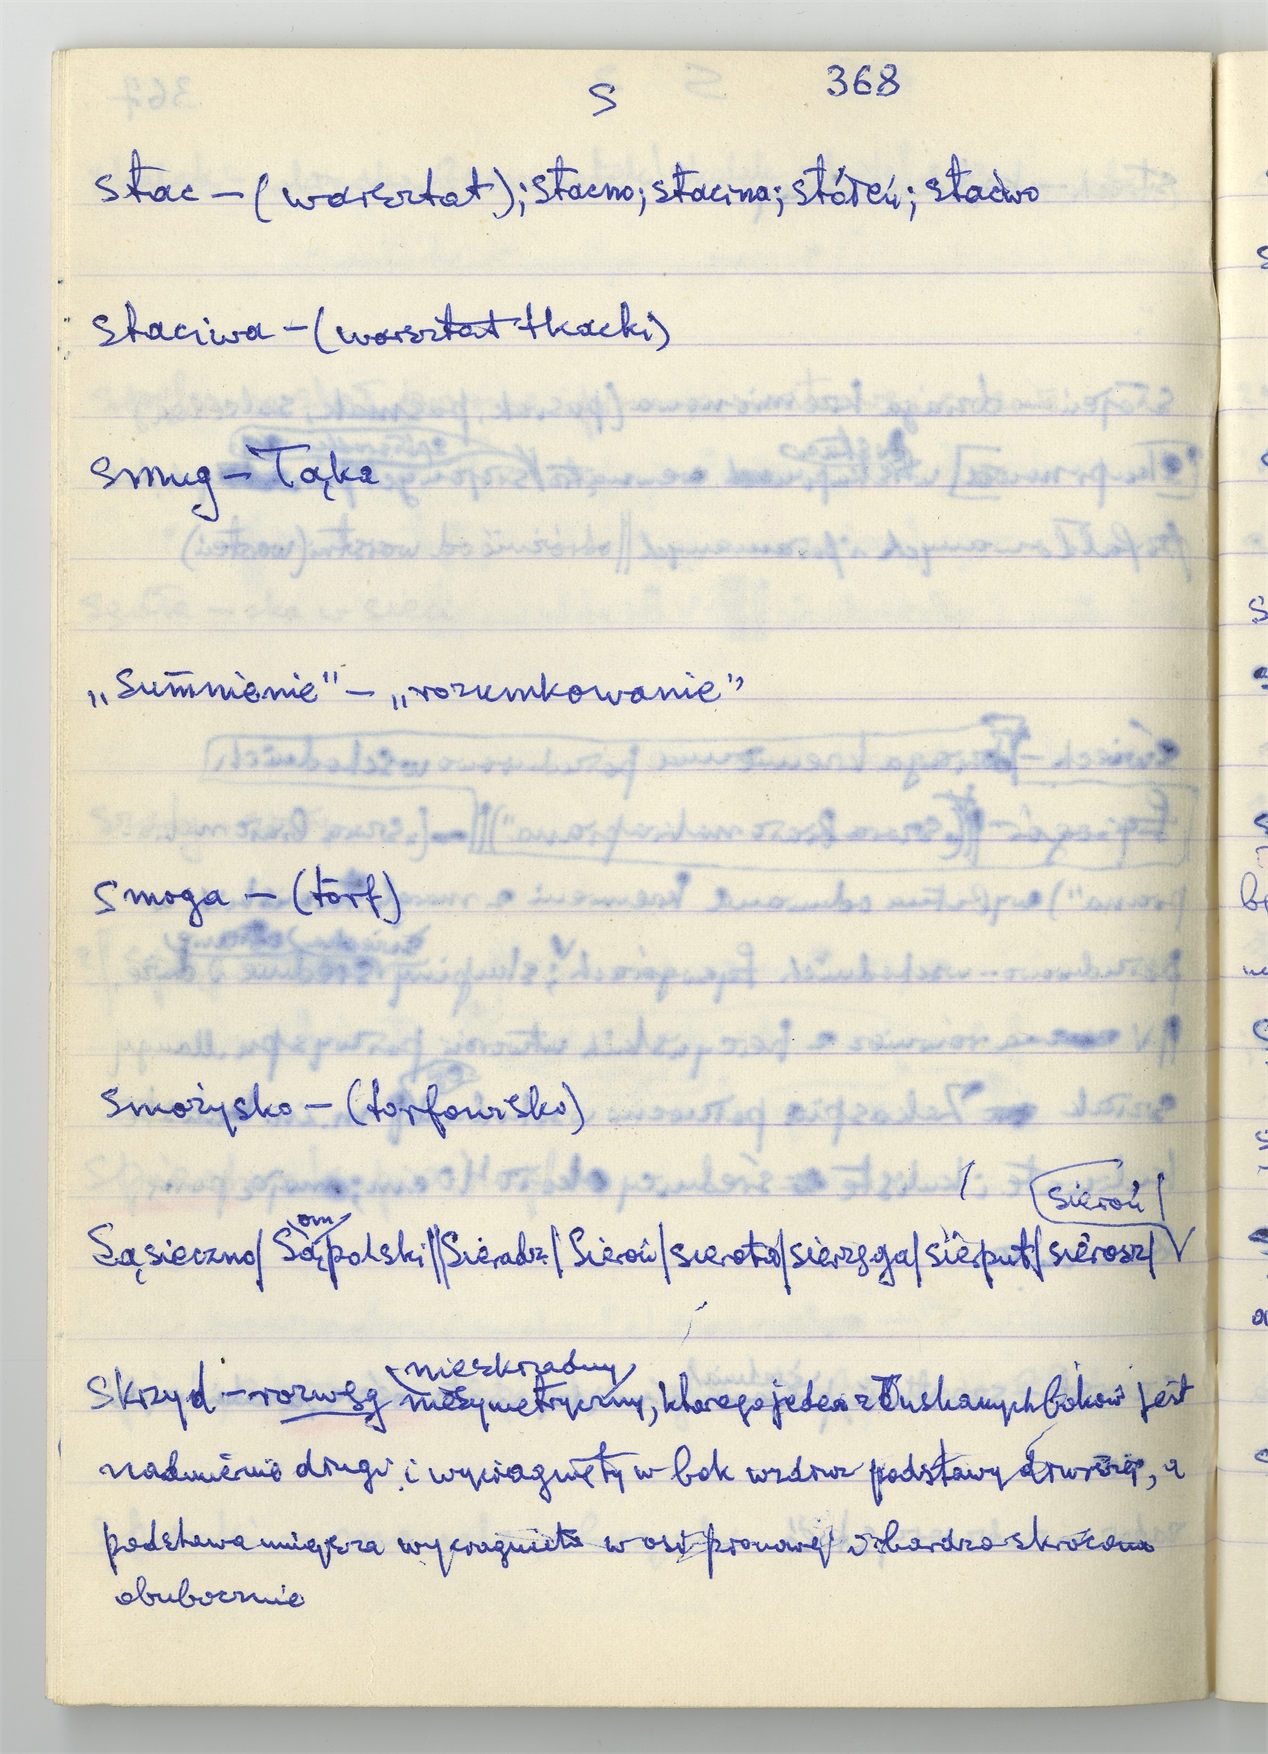 S 368
stac – (warsztat); stacno; stacina; stółeń; staćwo
staciwa – (warsztat tkacki)
smug – łąka
„sumnienie” – „rozumkowanie”
smoga – (torf)
smożysko – (torfowisko)
sieroń/
om
Sąsieczno/ Sąpolski//Sieradz/ Sieroń/sierota/sierzęga/sierput/sierosz/ V
nieskrzadny
skrzyd – rozwęg niesymetryczny, którego jeden z łuskanych boków jest
nadmiernie drugi i wyciągnięty w bok wzdłuż podstawy dłuższej, a
podstawa mniejsza wyciągnięta w osi pionowej i bardzo skrócona
obubocznie